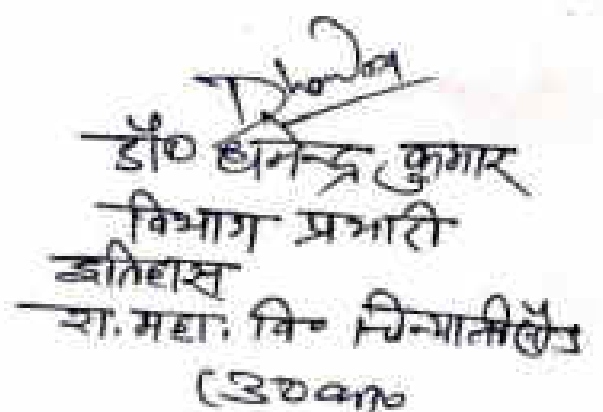 डॉ० धनेन्द्र कुमार
विभाग प्रभारी
इतिहास
रा. महा. वि० चिन्यालीसौड़